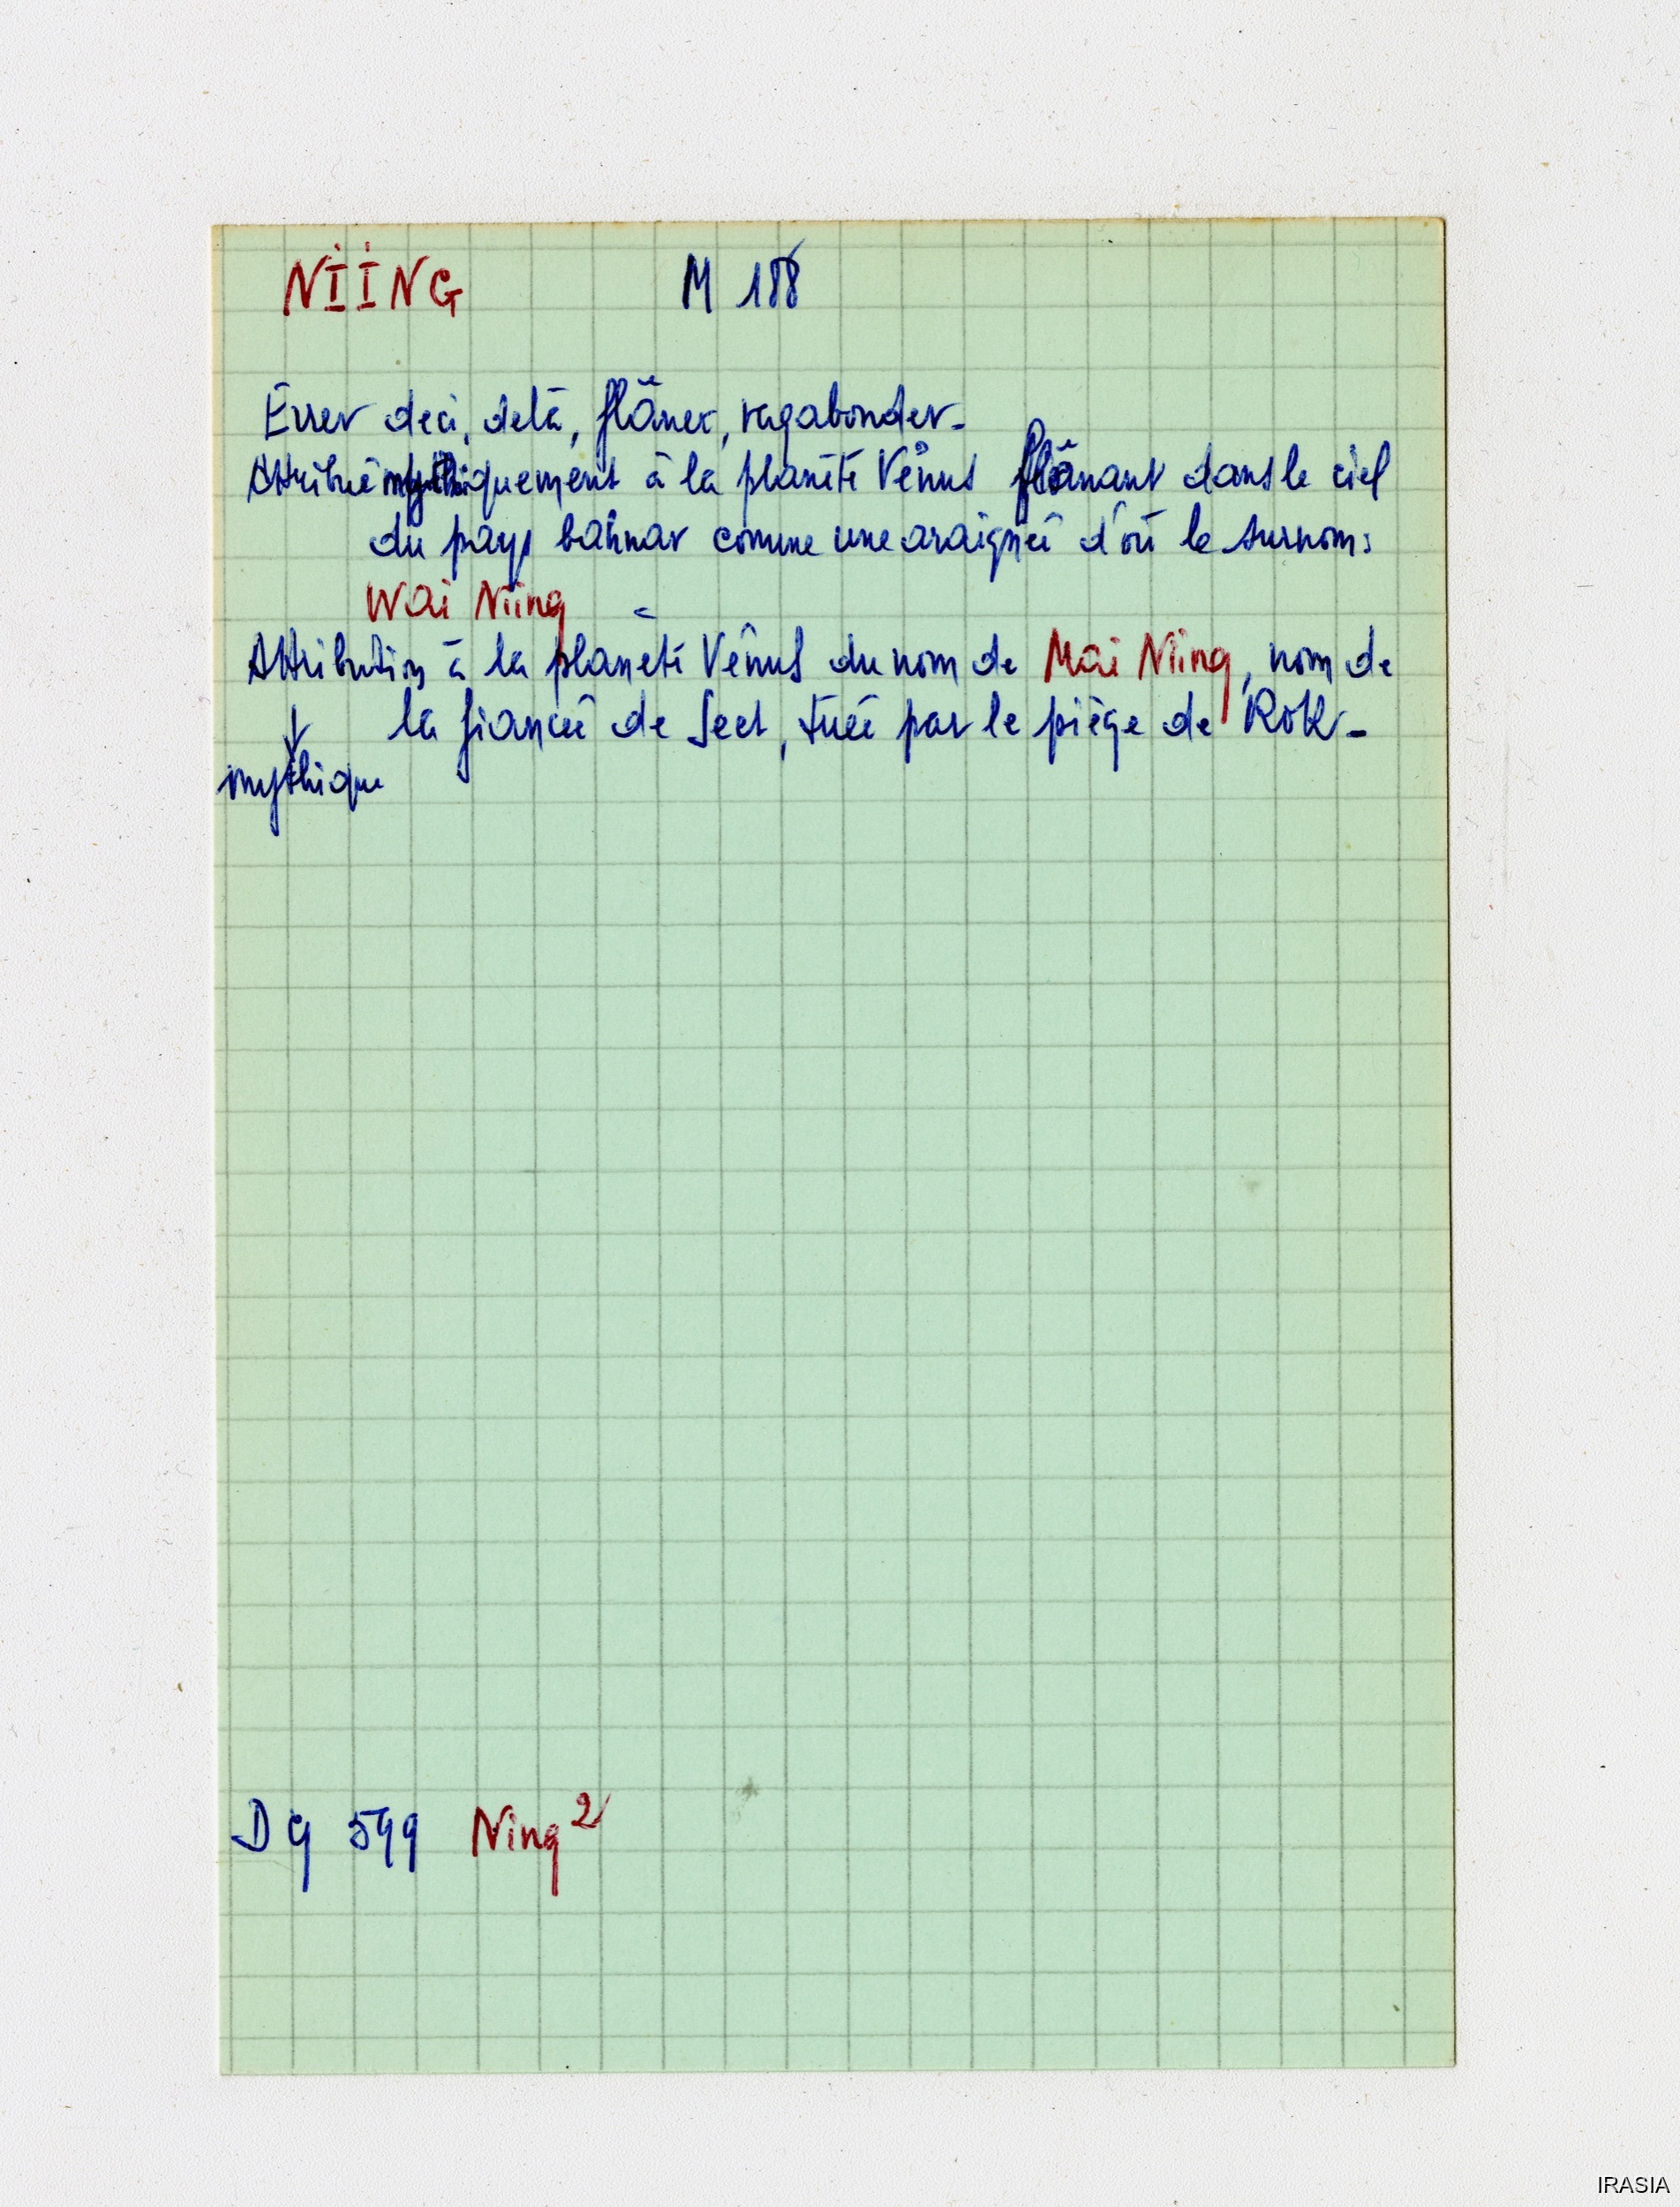 NIING M 188
Errer deci, delà, flâner, vagabonder -
Attribué mythiquement à la planète Vénus flânant dans le ciel
du pays bahnar comme une araignée d'où le surnom :
Wai Niing
Attribution à la planète Vénus du nom de Mai Niing, nom de
↓ la fiancée de Seet, tuée par le piège de Rok -
mythique
DG 599 Ning 2
IRASIA